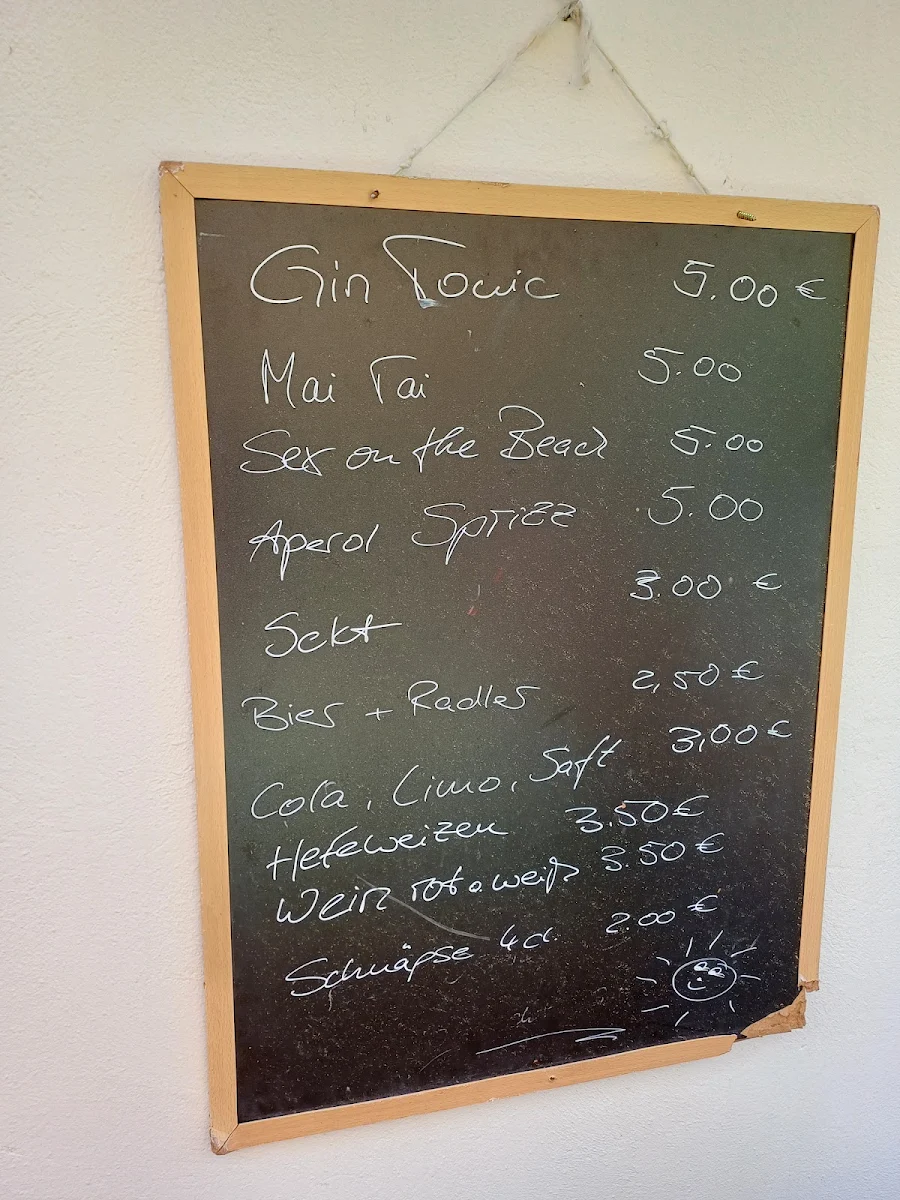 Gin Tonic 5.00 €
Mai Tai 5.00
Sex on the Beach 5.00
Aperol Sprizz 5.00
Sekt 3.00 €
Bier + Radler 2,50 €
Cola, Limo, Saft 3,00 €
Hefeweizen 3.50 €
Wein rot o weiß 3.50 €
Schnäpse 4cl 2.00 €